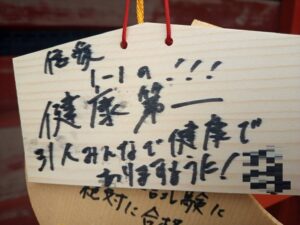 1-1の!!!
健康第一
31人みんなで健康で
ますように!
試験に
絶対に合格